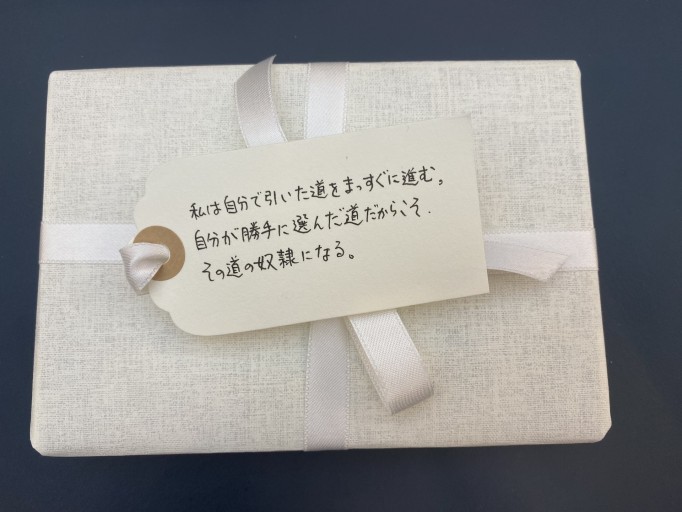 私は自分で引いた道をまっすぐに進む。
自分が勝手に選んだ道だからこそ.
その道の奴隷になる。